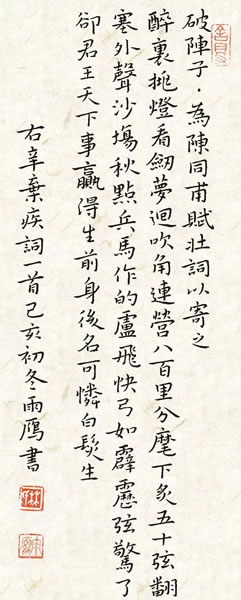 破陣子·為陳同甫賦壯詞以寄之
醉裏挑燈看劒夢迴吹角連營八百里分麾下炙五十弦翻
塞外聲沙場秋點兵馬作的盧飛快弓如霹靂弦驚了
卻君王天下事贏得生前身後名可憐白髮生
右辛棄疾詞一首己亥初冬雨鴈書